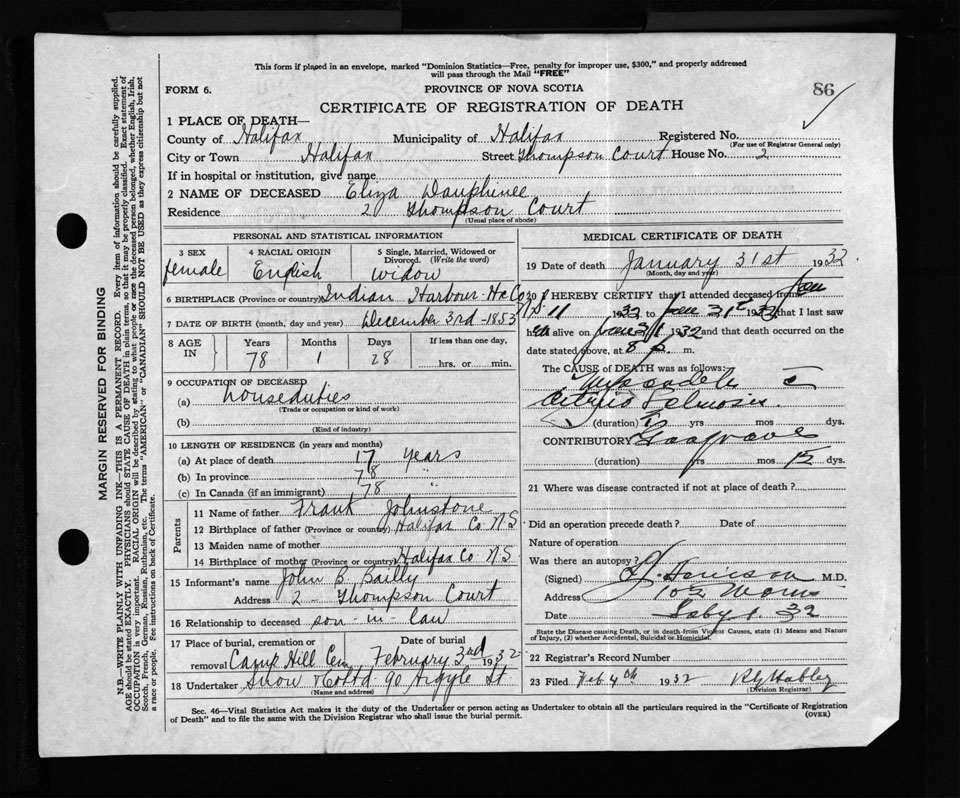 This form if placed in an envelope, marked "Dominion Statistics—Free, penalty for improper use, $300," and properly addressed
will pass through the Mail "FREE"
FORM 6.
PROVINCE OF NOVA SCOTIA
86
CERTIFICATE OF REGISTRATION OF DEATH
1 PLACE OF DEATH—
County of Halifax Municipality of Halifax Registered No.
(For use of Registrar General only)
City or Town Halifax Street Thompson Court House No. 2
If in hospital or institution, give name
2 NAME OF DECEASED Eliza Dauphinee
Residence 2 Thompson Court
(Usual place of abode)
PERSONAL AND STATISTICAL INFORMATION
3 SEX
female
4 RACIAL ORIGIN
English
5 Single, Married, Widowed or
Divorced. (Write the word)
widow
6 BIRTHPLACE (Province or country) Indian Harbour Hx Co
N S
7 DATE OF BIRTH (month, day and year) December 3rd - 1853
8 AGE IN
Years
78
Months
1
Days
28
If less than one day,
hrs. or min.
9 OCCUPATION OF DECEASED
(a) houseduties
(Trade or occupation or kind of work)
(b)
(Kind of industry)
10 LENGTH OF RESIDENCE (in years and months)
(a) At place of death 17 years
(b) In province 78 "
(c) In Canada (if an immigrant) 78 "
Parents
11 Name of father Frank Johnstone
12 Birthplace of father (Province or country) Halifax Co N S
13 Maiden name of mother
14 Birthplace of mother (Province or country) Halifax Co N S
15 Informant's name John B. Bailly
Address 2 - Thompson Court
16 Relationship to deceased son-in law
17 Place of burial, cremation or
removal Camp Hill Cem
Date of burial
February 3rd 1932
18 Undertaker Snow & Co Ltd 90 Argyle St
(Name and address)
MEDICAL CERTIFICATE OF DEATH
19 Date of death January 31st 1932
(Month, day and year)
20 I HEREBY CERTIFY that I attended deceased from Jan
11 1932 to Jan 31st 1932 that I last saw
her alive on Jan 31 1932 and that death occurred on
date stated above, at 8 p. m.
The CAUSE of DEATH was as follows:
(duration) yrs mos dys.
CONTRIBUTORY
(duration) yrs mos 12 dys.
21 Where was disease contracted if not at place of death?
Did an operation precede death? Date of
Nature of operation
Was there an autopsy?
(Signed) M.D.
Address
Date 32
State the Disease causing Death, or in death from Violent Causes, state (1) Means and Nature
of Injury, (2) whether Accidental, Suicidal or Homicidal.
22 Registrar's Record Number
23 Filed Feb 4th 1932
(Division Registrar)
Sec. 46—Vital Statistics Act makes it the duty of the Undertaker or person acting as Undertaker to obtain all the particulars required in the "Certificate of Registration
of Death" and to file the same with the Division Registrar who shall issue the burial permit.
(OVER)
MARGIN RESERVED FOR BINDING
N.B—WRITE PLAINLY WITH UNFADING INK—THIS IS A PERMANENT RECORD. Every item of information should be carefully supplied.
AGE should be stated EXACTLY. PHYSICIANS should STATE CAUSE OF DEATH in plain terms, so that it may be properly classified. Exact statement of
OCCUPATION is very important. RACIAL ORIGIN will be described by stating to what people or race the deceased person belonged, whether English, Irish,
Scotch, French, German, Russian, Ruthenian, etc. The terms "AMERICAN" or "CANADIAN" SHOULD NOT BE USED as they express citizenship but not
a race or people. See instructions on back of Certificate.